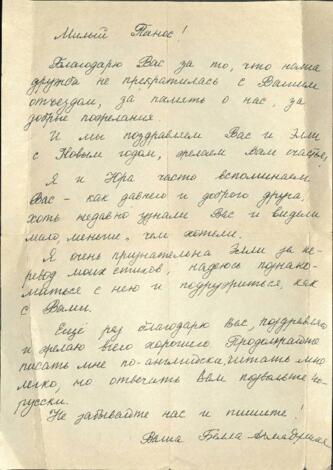 Милый Панос!
Благодарю Вас за то, что наша
дружба не прекратилась с Вашим
отъездом, за память о нас, за
добрые пожелания.
И мы поздравляем Вас и Элли
с Новым годом, желаем Вам счастья,
Я и Юра часто вспоминаем
Вас - как давнего и доброго друга,
хоть недавно узнали Вас и видели
мало, меньше, чем хотели.
Я очень признательна Элли за пе-
ревод моих стихов, надеюсь познако-
миться с нею и подружиться, как
с Вами.
Ещё раз благодарю Вас, поздравляю
и желаю всего хорошего. Продолжайте
писать мне по-английски. Читать мне
легко, но отвечать Вам позвольте по-
русски.
Не забывайте нас и пишите!
Ваша Белла Ахмадулина